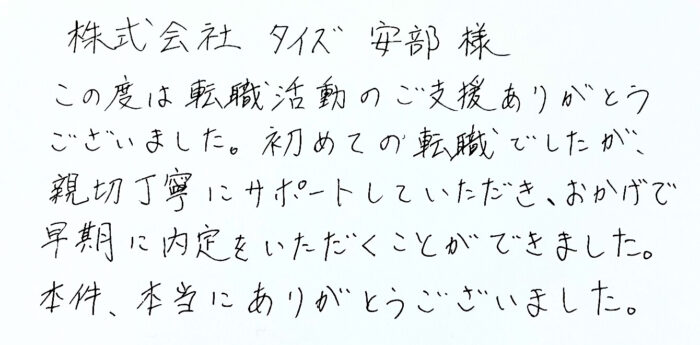 株式会社 タイズ 安部 様
この度は転職活動のご支援ありがとう
ございました。初めての転職でしたが、
親切丁寧にサポートしていただき、おかげで
早期に内定をいただくことができました。
本件、本当にありがとうございました。